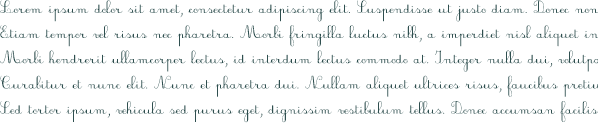 Lorem ipsum dolor sit amet, consectetur adipiscing elit. Suspendisse ut justo diam. Donec non
Etiam tempor vel risus nec pharetra. Morbi fringilla luctus nibh, a imperdiet nisl aliquet in
Morbi hendrerit ullamcorper lectus, id interdum lectus commodo at. Integer nulla dui, volutpa
Curabitur et nunc elit. Nunc et pharetra dui. Nullam aliquet ultrices risus, faucibus pretiu
Sed tortor ipsum, vehicula sed purus eget, dignissim vestibulum tellus. Donec accumsan facilis